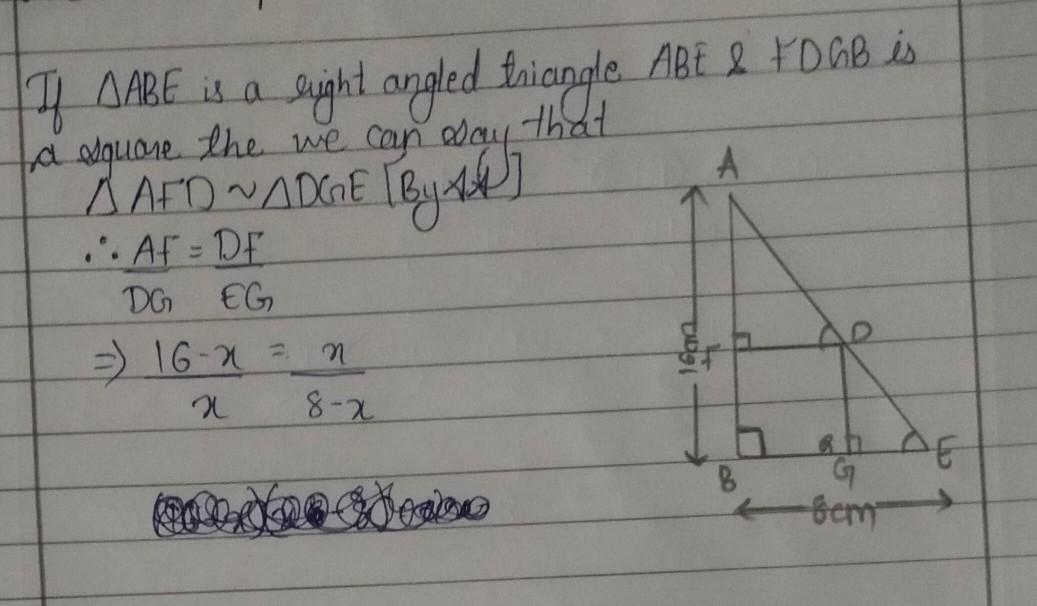 If ΔABE is a right angled triangle ABE & FDGB is
a square the we can say that
Δ AFD ~ ΔDGE [By AA]
∴ AF = DF
DG EG
=> 16-x = x
x 8-x
A
16cm
F
D
B
G
E
8cm